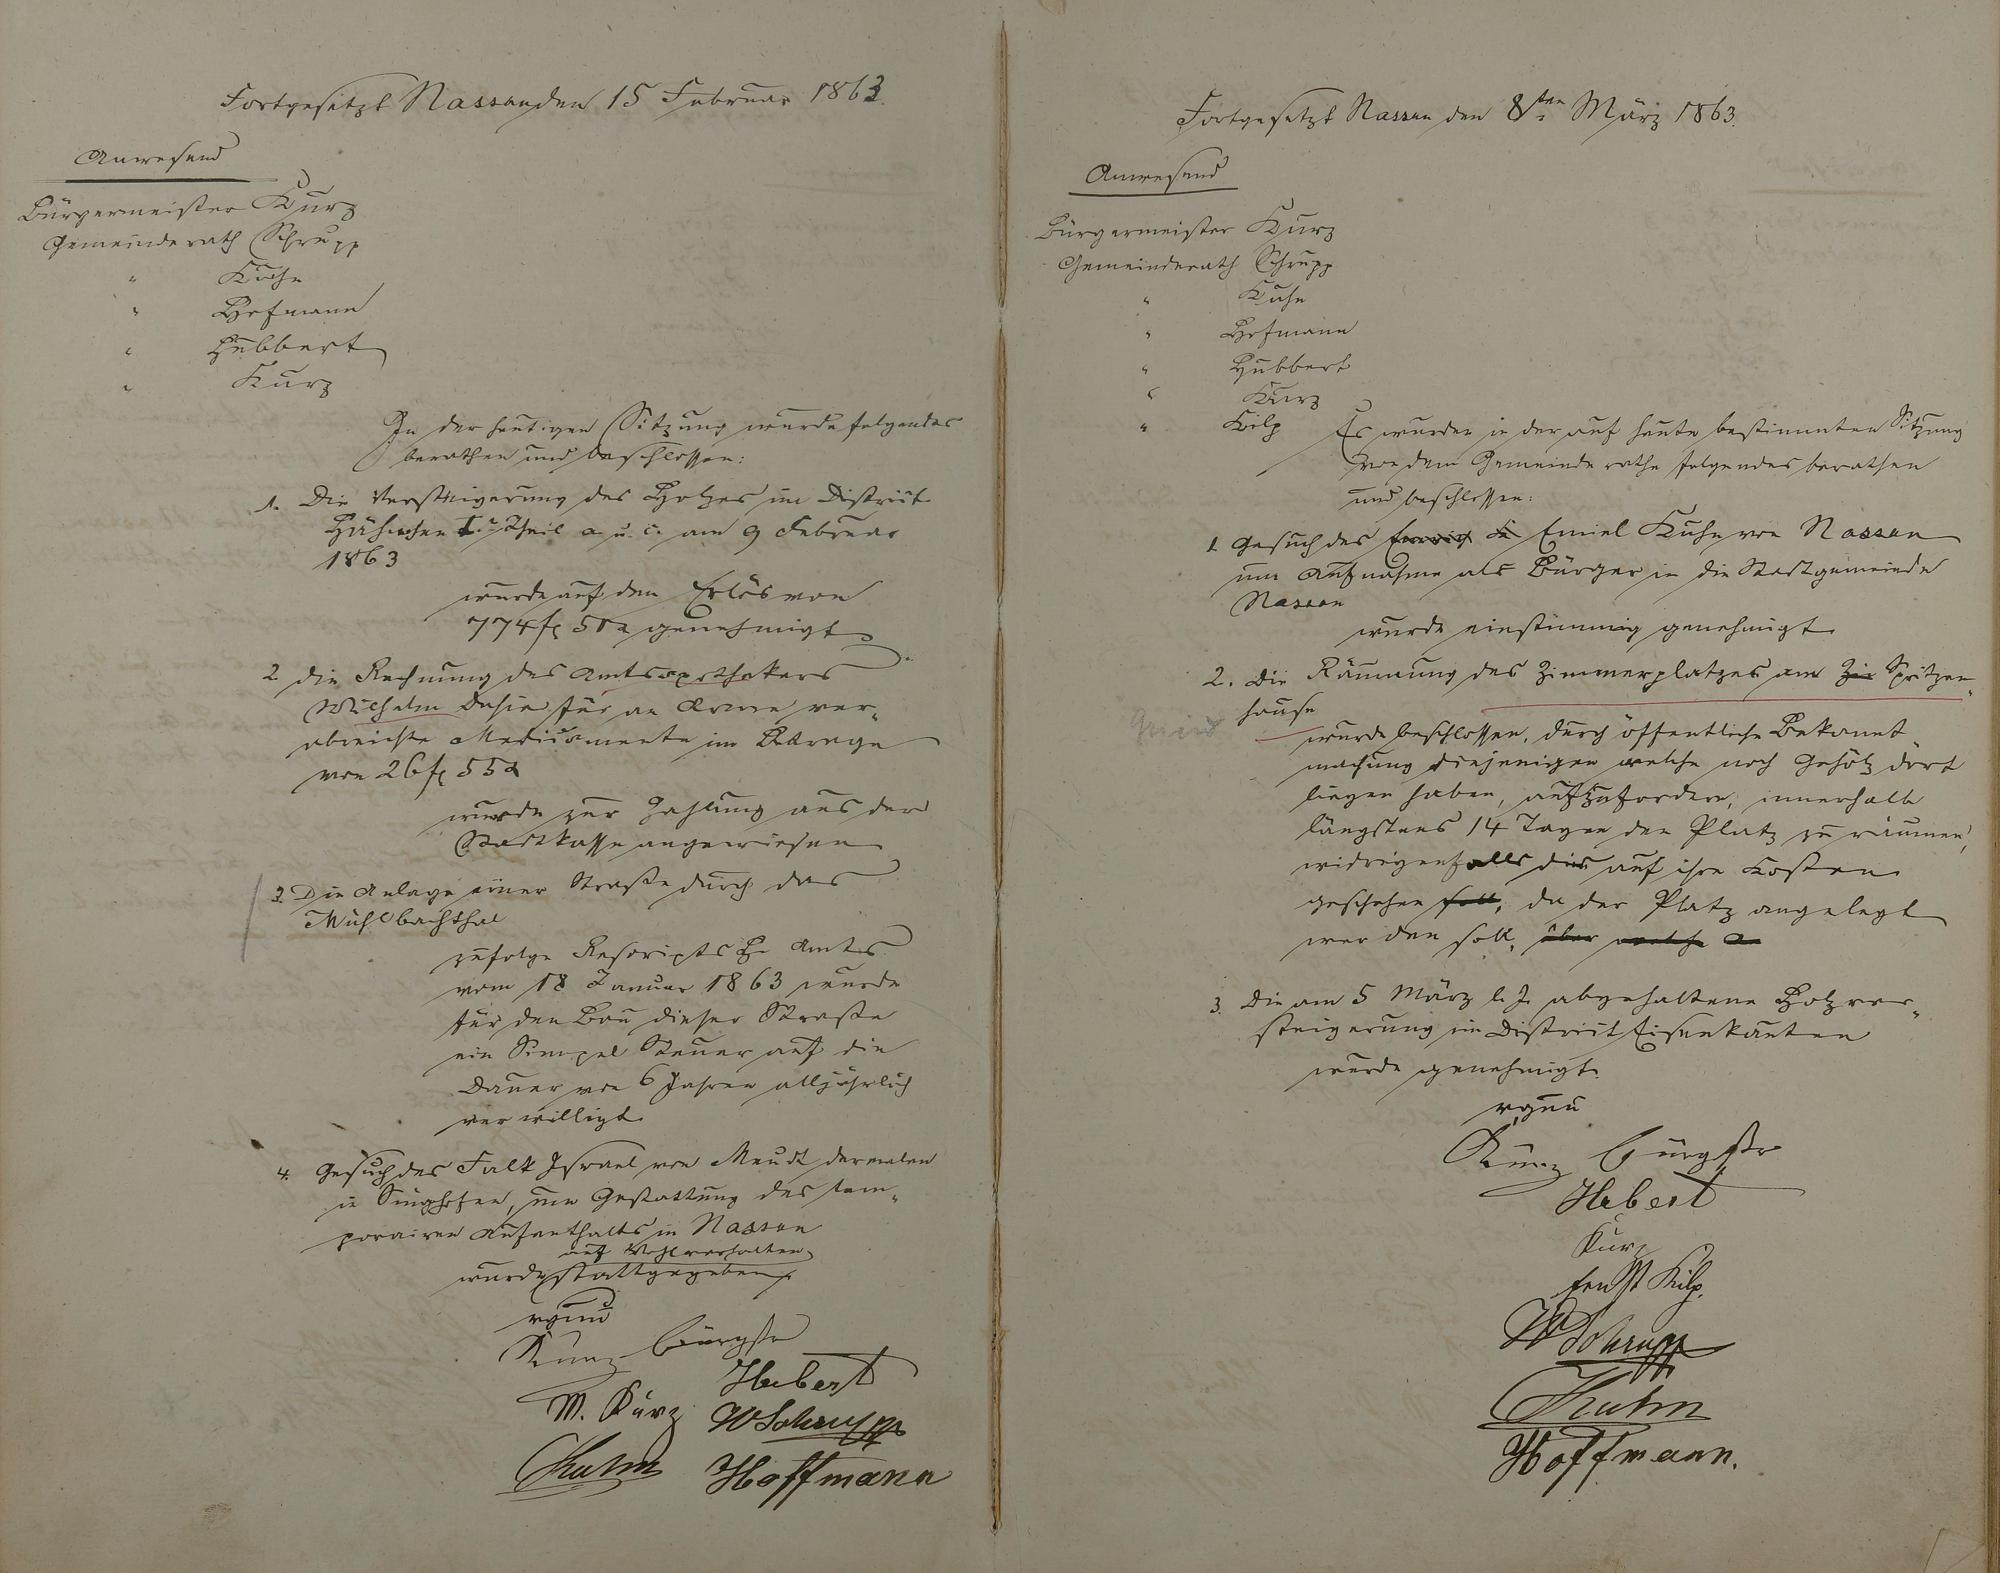 Fortgesetzt Nassau den 15 Februar 1863.
Anwesend
Bürgermeister Kurz
Gemeinderath Schrupp
" Kuhn
" Hofmann
" Hubbert
" Kurz
In der heutigen Sitzung wurde folgendes
berathen und beschlossen:
1. Die Versteigerung des Holzes im District
Hähnchen I.r Theil a. u. c. am 9 Februar
1863
wurde auf den Erlös von
774 fl 50 x genehmigt
2. die Rechnung des Amtsapothekers
Wilhelm für an Arme ver-
abreichte Medicamente im Betrage
von 26 fl 55 x
wurde zur Zahlung aus der
Stadtkasse angewiesen
3. Die Anlage einer Straße durch das
Mühlbachthal
zufolge Rescripts H. Amts
vom 18 Januar 1863 wurde
für den Bau dieser Straße
ein Simpel Steuer auf die
Dauer von 6 Jahren alljährlich
verwilligt.
4. Gesuch des Falk Israel von Meudt dermalen
in Singhofen, um Gestattung des tem-
porairen Aufenthalts in Nassau
auf Wohlverhalten
wurde stattgegeben.
vgnu
Kurz Bürgstr
Hubert
M. Kurz WSchrupp
Kuhn Hoffmann
Fortgesetzt Nassau den 8ten März 1863.
Anwesend
Bürgermeister Kurz
Gemeinderath Schrupp
" Kuhn
" Hofmann
" Hubbert
" Kurz
" Kilp
Es wurden in der auf heute bestimmten Sitzung
von dem Gemeinderathe folgendes berathen
und beschlossen:
1. Gesuch des Emiel Kuhn von Nassau
um Aufnahme als Bürger in die Stadtgemeinde
Nassau
wurde einstimmig genehmigt.
2. Die Räumung des Zimmerplatzes am Spritzen-
hause
wurde beschlossen, durch öffentliche Bekannt
machung diejenigen welche noch Gehölz dort
liegen haben, aufzufordern, innerhalb
längstens 14 Tagen den Platz zu räumen,
widrigenfalls dies auf ihre Kosten
geschehen soll, da der Platz angelegt
werden soll, über welche a
3. Die am 5 März l. J. abgehaltene Holzver-
steigerung im District Eisenkauten
wurde genehmigt.
vgnu
Kurz Bürgstr
Hubert
Kurz
Ernst Kilp.
WSchrupp
Kuhn
Hoffmann.